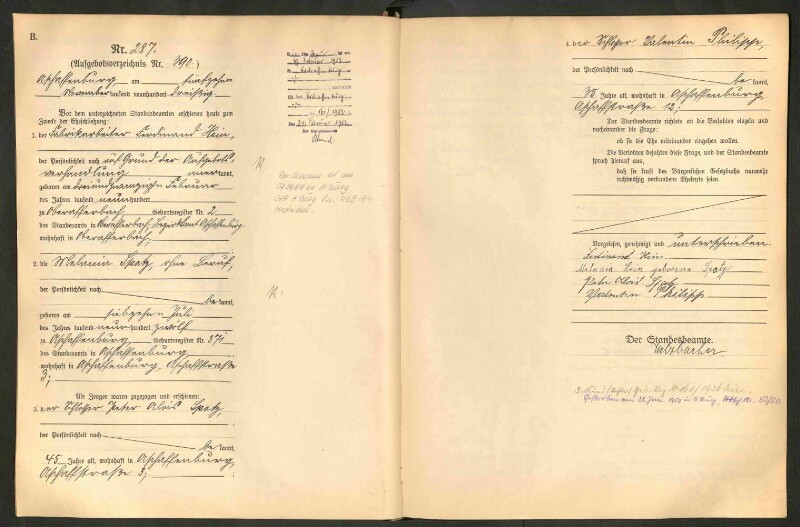 B.
Nr. 287.
(Aufgebotsverzeichnis Nr. 390.)
Aschaffenburg am fünfzehn
November tausend neunhundert dreißig.
Vor dem unterzeichneten Standesbeamten erschienen heute zum
Zwecke der Eheschließung:
1. der Fabrikarbeiter Ferdinand Hein,
der Persönlichkeit nach auf Grund der Aufgebots-
verhandlung anerkannt,
geboren am dreiundzwanzigsten Februar
des Jahres neunhundert
zu Oberafferbach Geburtsregister Nr. 2
des Standesamts in Oberafferbach, Bezirksamt Aschaffenburg
wohnhaft in Oberafferbach,
2. die Melania Spatz, ohne Beruf,
der Persönlichkeit nach
bekannt,
geboren am siebzehn Juli
des Jahres tausend neunhundert zwölf
zu Aschaffenburg Geburtsregister Nr. 371
des Standesamts in Aschaffenburg
wohnhaft in Aschaffenburg, Aschaffstraße
3;
Als Zeugen waren zugezogen und erschienen:
3. der Schlosser Peter Alois Spatz,
der Persönlichkeit nach
bekannt,
45 Jahre alt, wohnhaft in Aschaffenburg,
Aschaffstraße 3;
4. der Schlosser Valentin Philipp,
der Persönlichkeit nach
bekannt,
35 Jahre alt, wohnhaft in Aschaffenburg,
Aschaffstraße 12;
Der Standesbeamte richtete an die Verlobten einzeln und
nacheinander die Frage:
ob sie die Ehe miteinander eingehen wollen.
Die Verlobten bejahten diese Frage, und der Standesbeamte
sprach hierauf aus,
daß sie kraft des Bürgerlichen Gesetzbuchs nunmehr
rechtmäßig verbundene Eheleute seien.
Vorgelesen, genehmigt und unterschrieben.
Ferdinand Hein.
Melania Hein geborene Spatz
Peter Alois Spatz
Valentin Philipp
Der Standesbeamte.